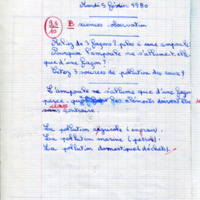 Mardi 5 février 1980
sciences observation
Reliez de 3 façons 1 pile à une ampoule
Pourquoi l'ampoule ne s'allume-t-elle
que d'une façon ?
Citez 3 sources de pollution des eaux ?
L'ampoule ne s'allume que d'une façon
parce que les éléments doivent être
contraire.
La pollution agricole (engrais).
La pollution marine (pétrole).
La pollution domestique (déchets).